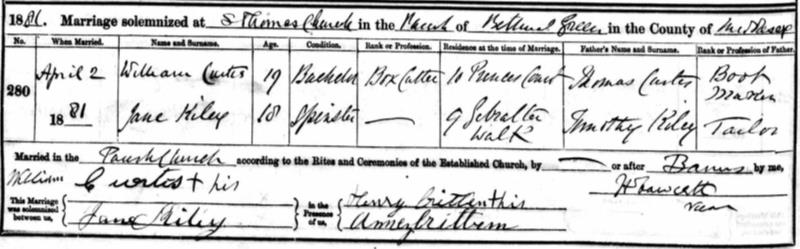 1881. Marriage solemnized at St Thomas Church in the Parish of Bethnal Green in the County of Middlesex
No. When Married. Name and Surname. Age. Condition. Rank or Profession. Residence at the time of Marriage. Father's Name and Surname. Rank or Profession of Father.
280 April 2 William Curtis 19 Bachelor Box Cutter 10 Princes Court Thomas Curtis Boot Maker
1881 Jane Kiley 18 Spinster — 9 Gibralter Walk Timothy Kiley Tailor
Married in the Parish Church according to the Rites and Ceremonies of the Established Church, by — or after Banns by me,
William Curtis + his
This Marriage was solemnized between us, Jane Kiley In the Presence of us, Henry Critten his
Vicar